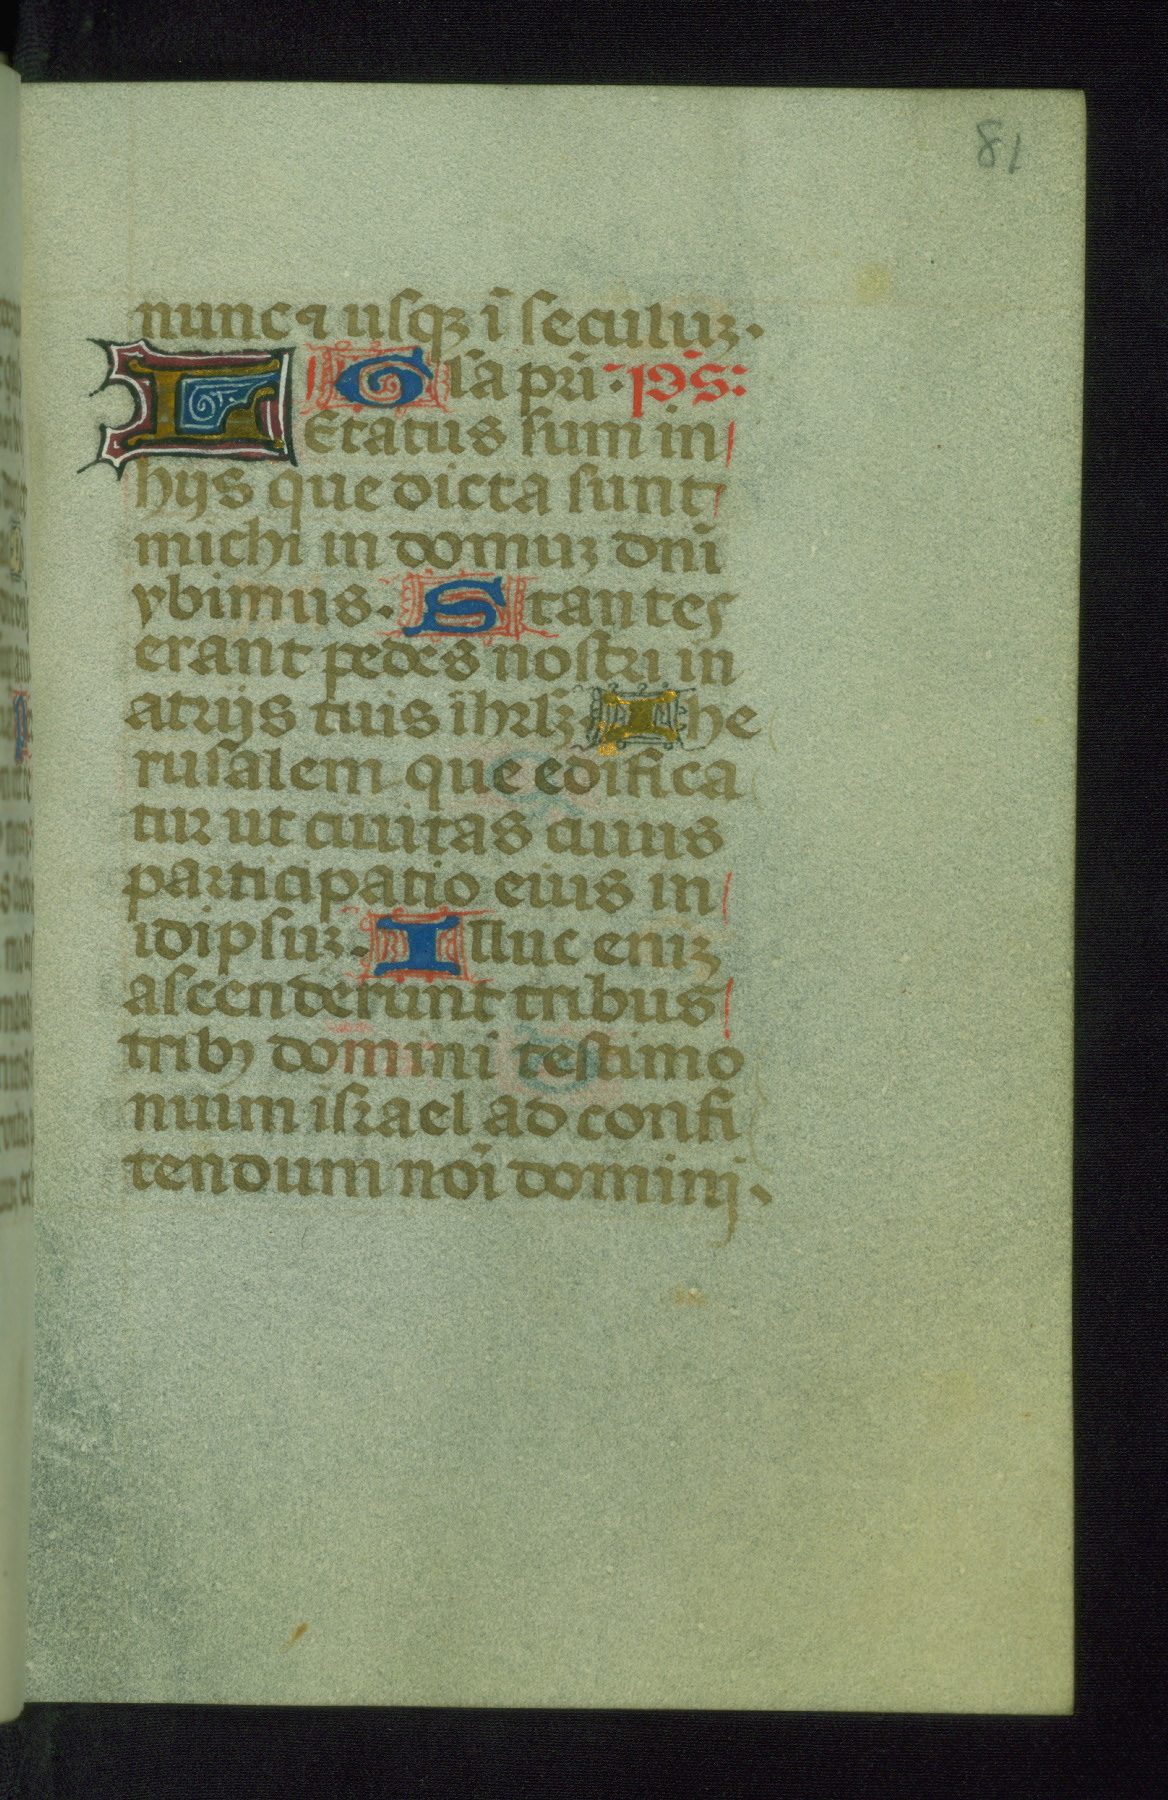 81
nunc ⁊ usqꝫ ī seculuꝫ.
Gl'a pr̄i. p̄s:
LEtatus sum in
hijs que dicta sunt
michi in domuꝫ dn̄i
ybimus. Stantes
erant pedes nostri in
atrijs tuis ihrl'ꝫ. Ihe
rusalem que edifica
tur ut ciuitas cuius
participatio eius in
idipsuꝫ. Illuc eniꝫ
ascenderunt tribus
tribꝰ domini testimo
nium israel ad confi
tendum noī dominj.